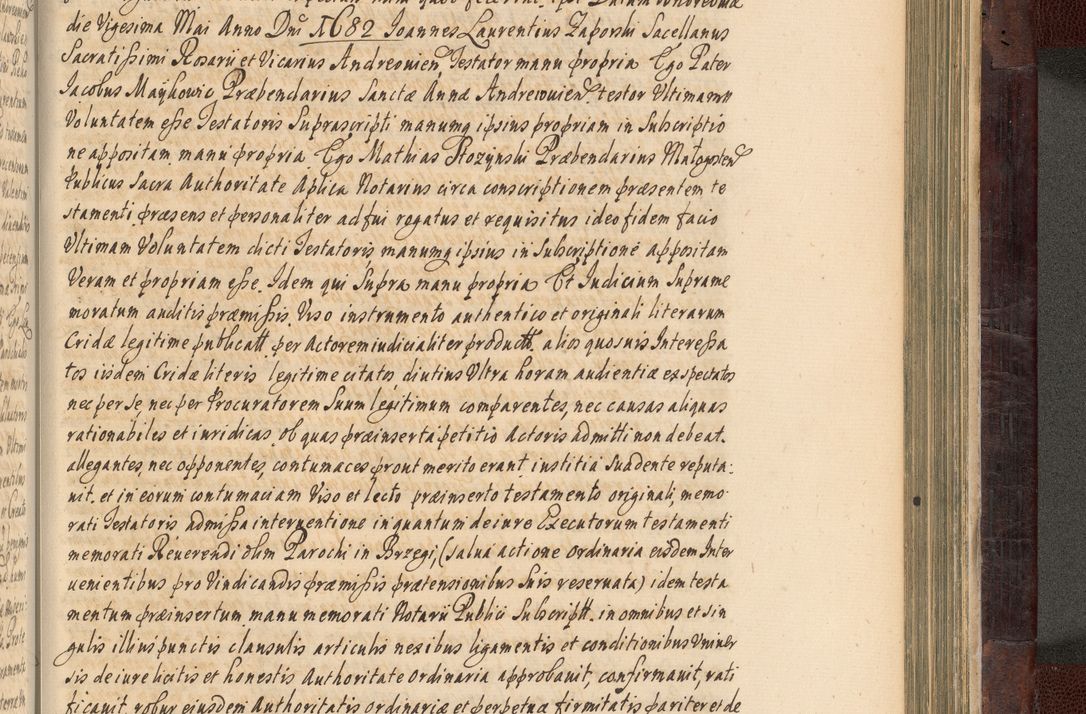 die Vigesima Mai Anno Dni 1682 Joannes Laurentius Zaporski Sacellanus
Sacratissimi Rosarii et Vicarius Andreovien Testator manu propria Ego Pater
Jacobus Maykowic Præbendarius Sanctæ Annæ Andreovien testor Ultimam
Voluntatem esse Testatoris Suprascripti manumq ipsius propriam in Subscriptio
ne appositam manu propria Ego Mathias Rozynski Præbendarius Małogosten
Publicus Sacra Authoritate Aplica Notarius circa conscriptionem præsentem te
stamenti præsens et personaliter adfui rogatus et requisitus ideo fidem facio
Ultimam Voluntatem dicti Testatoris manumq ipsius in Subscriptione appositam
Veram et propriam esse. Idem qui Supra manu propria Et Judicium Supra me
moratum auditis præmissis. Viso instrumento authentico et originali literarum
Cridæ legitime publicatt per Actorem iudicialiter productt alios quosuis Interessa
tos iisdem Cridæ literis legitime citatos diutius Ultra horam audientiæ expectatos
nec per se, nec per Procuratorem Suum legitimum comparentes, nec causas aliquas
rationabiles et iuridicas ob quas præinserta petitio Actoris admitti non debeat.
allegantes, nec opponentes, contumaces prout merito erant iustitia Suadente reputa:
uit. et in eorum contumaciam Viso et lecto præinserto testamento originali, memo
rati Testatoris admissa interuentione in quantum de iure Executorum testamenti
memorati Reuerendi olim Parochi in Brzegi, (salua actione ordinaria eisdem Inter
uenientibus pro Vindicandis præmissis prætensionibus Suis reseruata) idem testa
mentum præinsertum manu memorati Notarii Publici Subscriptt. in omnibus et sin
gulis illius punctis clausulis articulis nexibus ligamentis et conditionibus Vniuer
sis de iure licitis et honestis Authoritate Ordinaria approbauit, confirmauit, rati
ficauit, robur eiusdem Authoritatis ordinariæ et perpetuæ firmitatis pariter et de